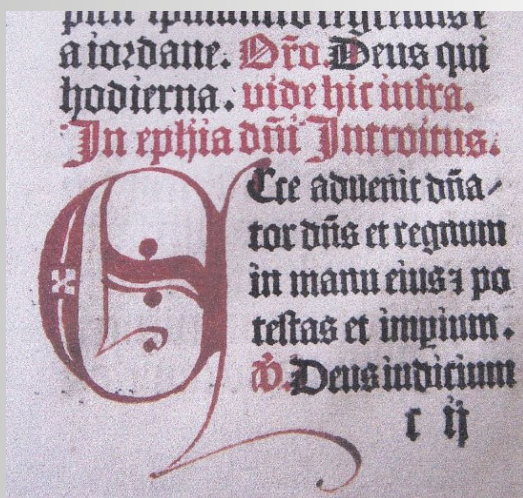 a iordane. Or̃o. Deus qui
hodierna. vide hic infra.
In ephia dñi Introitus.
Ecce aduenit dña⸗
tor dñs et regnum
in manu eius ⁊ po
testas et imꝑium.
p̃s. Deus iudicium
c ij